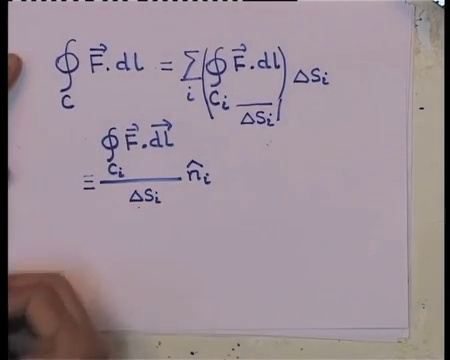 ∮_C F⃗.dl = Σ_i (∮_{C_i} F⃗.dl / ΔS_i) ΔS_i
≡ (∮_{C_i} F⃗.dl⃗ / ΔS_i) n̂_i